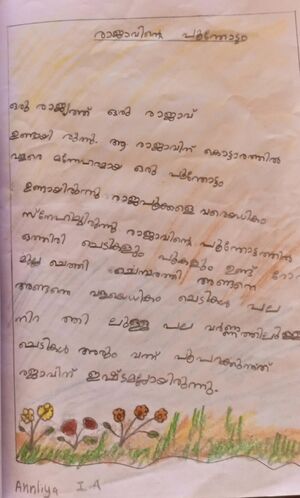 രാജാവിന്റെ പൂന്തോട്ടം
ഒരു രാജ്യത്ത് ഒരു രാജാവ്
ഉണ്ടായി രുന്നു. ആ രാജാവിന് കൊട്ടാരത്തിൽ
വളരെ മനോഹരമായ ഒരു പൂന്തോട്ടം
ഉണ്ടായിരുന്നു രാജാപൂക്കളെ വളരെയധികം
സ്നേഹിച്ചിരുന്നു രാജാവിന്റെ പൂന്തോട്ടത്തിൽ
ഒത്തിരി ചെടികളും പൂകളും ഉണ്ട് റോ
മുല്ല ചെത്തി ചെമ്പരത്തി അങ്ങനെ
അങ്ങനെ വളയെധികം ചെടികൾ പല
നിറ ത്തി ലുള്ള പല വർണ്ണത്തിലുള്ള
ചെടികൾ ആരും വന്ന് പൂപറക്കുന്നത്
രജാവിന് ഇഷ്ടമല്ലായിരുന്നു.
Annliya I A